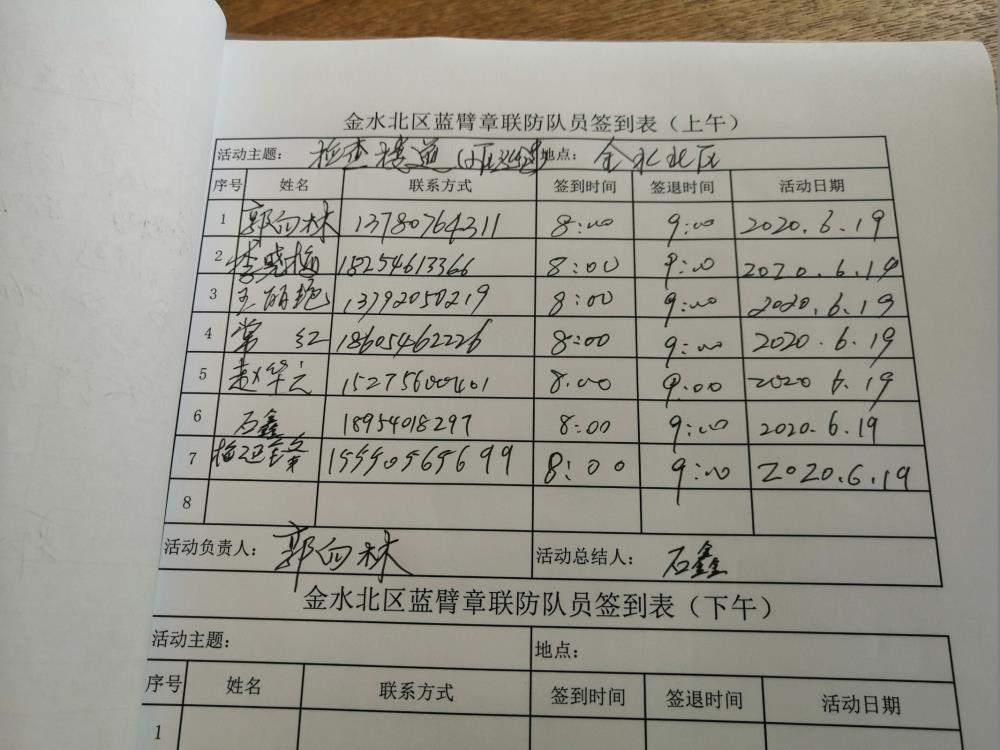 金水北区蓝臂章联防队员签到表（上午）
活动主题： 检查楼道 地点： 金水北区
序号 姓名 联系方式 签到时间 签退时间 活动日期
1 郭向林 13780764311 8:00 9:00 2020.6.19
2 李晓梅 18254613366 8:00 9:00 2020.6.19
3 王丽艳 13792050219 8:00 9:00 2020.6.19
4 常红 18605462226 8:00 9:00 2020.6.19
5 赵华云 15275600401 8:00 9:00 2020 6.19
6 石鑫 18954018297 8:00 9:00 2020.6.19
7 15550565699 8:00 9:00 2020.6.19
8
活动负责人： 郭向林 活动总结人： 石鑫
金水北区蓝臂章联防队员签到表（下午）
活动主题： 地点：
序号 姓名 联系方式 签到时间 签退时间 活动日期
1